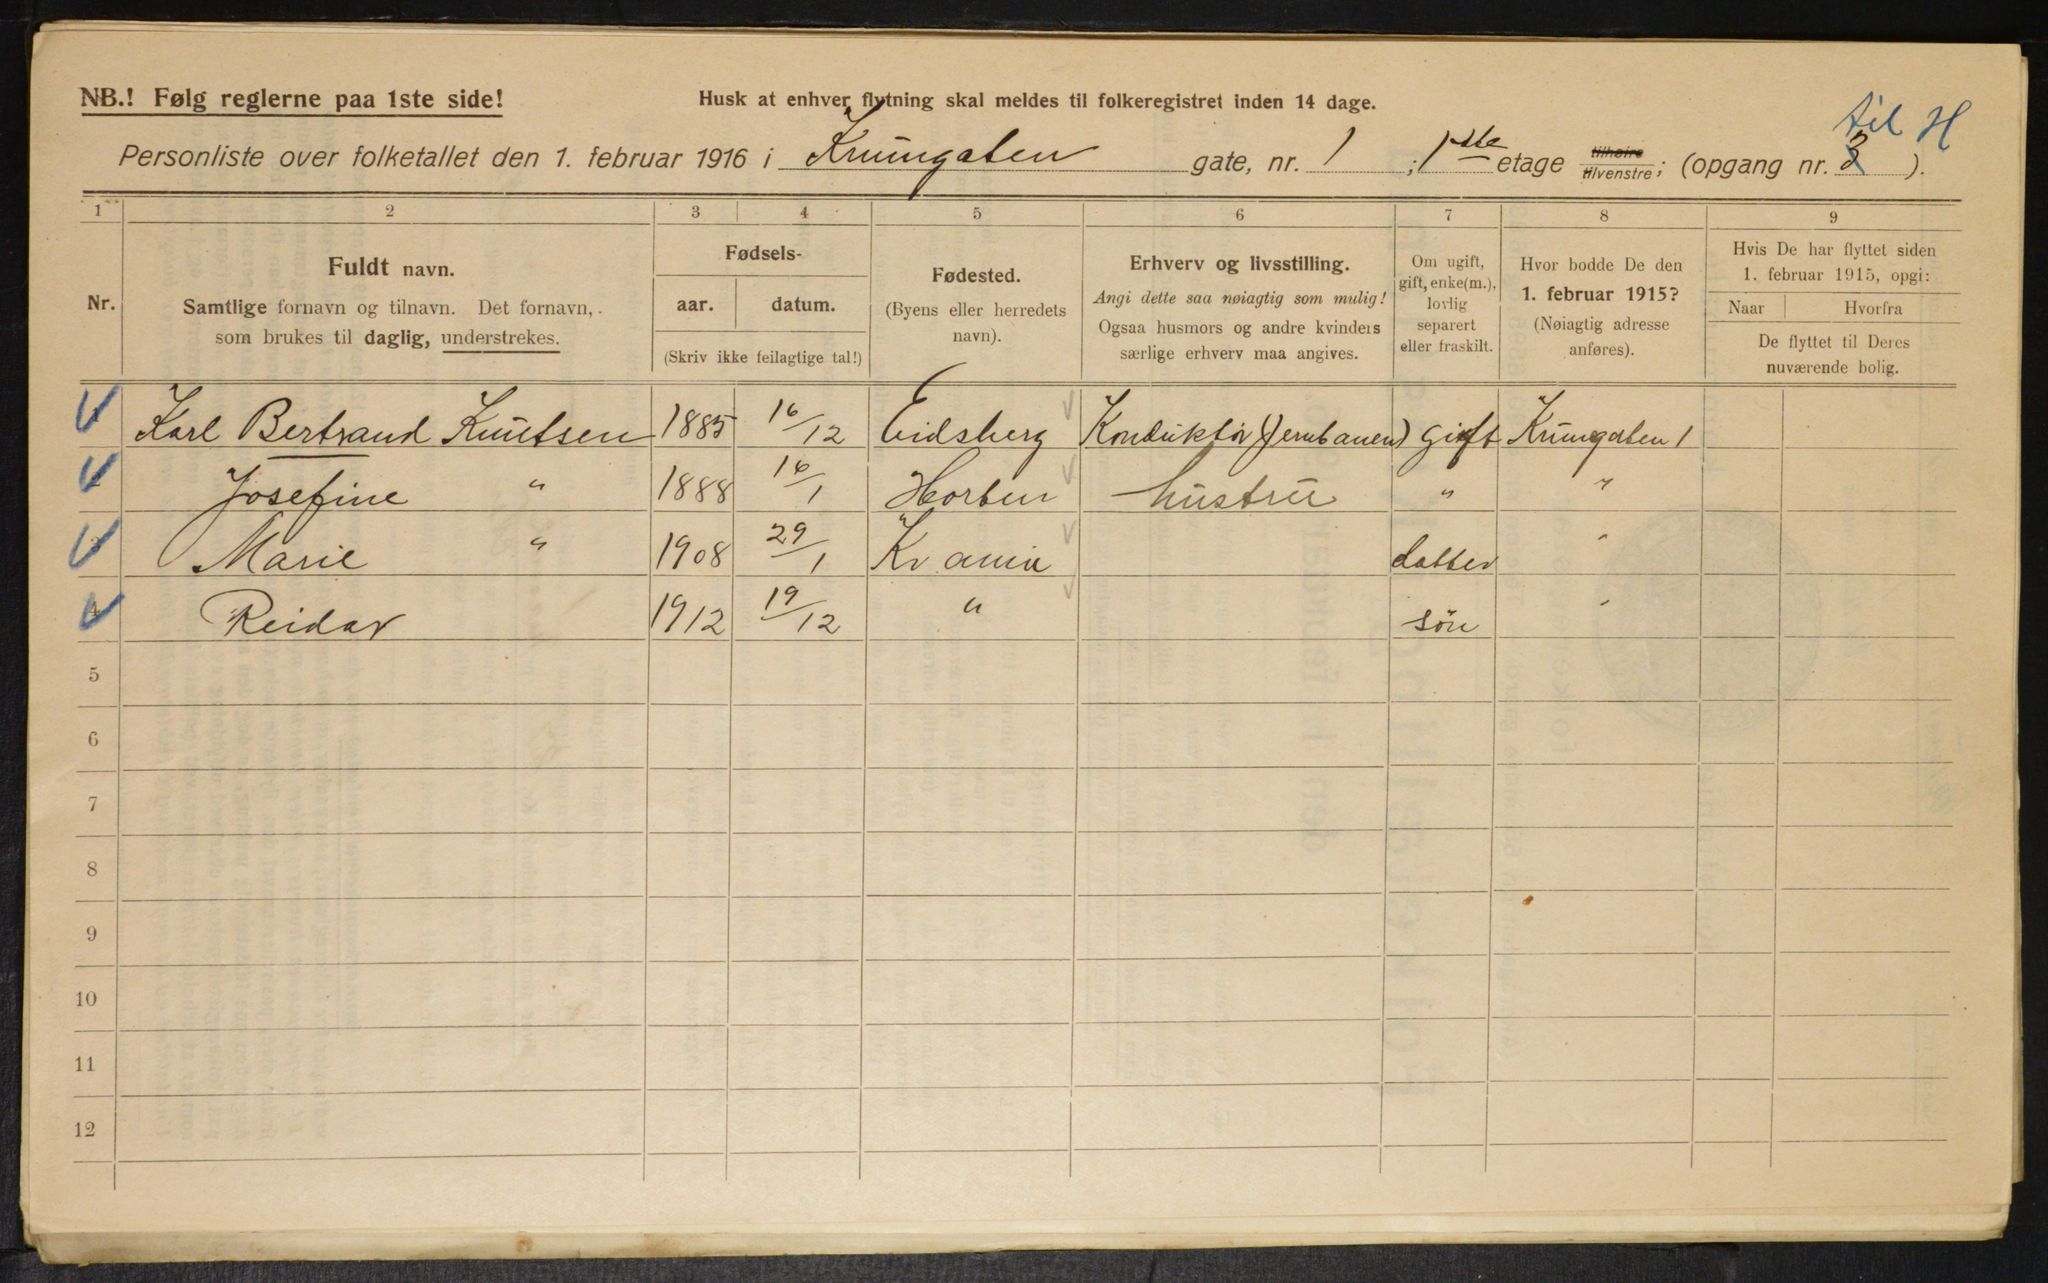 NB.! Følg reglerne paa 1ste side!
Husk at enhver flytning skal meldes til folkeregistret inden 14 dage.
til H
Personliste over folketallet den 1. februar 1916 i Krumgaten gate, nr. 1 ; 1ste etage tilhøire tilvenstre; (opgang nr. 3 ).
1 2 3 4 5 6 7 8 9
Nr.
Fuldt navn.
Samtlige fornavn og tilnavn. Det fornavn,
som brukes til daglig, understrekes.
Fødsels-
aar. datum.
(Skriv ikke feilagtige tal!)
Fødested.
(Byens eller herredets
navn).
Erhverv og livsstilling.
Angi dette saa nøiagtig som mulig!
Ogsaa husmors og andre kvinders
særlige erhverv maa angives.
Om ugift,
gift, enke(m.),
lovlig
separert
eller fraskilt.
Hvor bodde De den
1. februar 1915?
(Nøiagtig adresse
anføres).
Hvis De har flyttet siden
1. februar 1915, opgi:
Naar Hvorfra
De flyttet til Deres
nuværende bolig.
1 Karl Bertrand Knutsen 1885 16/12 Eidsberg Konduktör (Jernbanen) gift Krumgaten 1
2 Josefine " 1888 16/1 Horten hustru " "
3 Marie " 1908 29/1 Kr ania datter "
4 Reidar 1912 19/12 " sön "
5
6
7
8
9
10
11
12